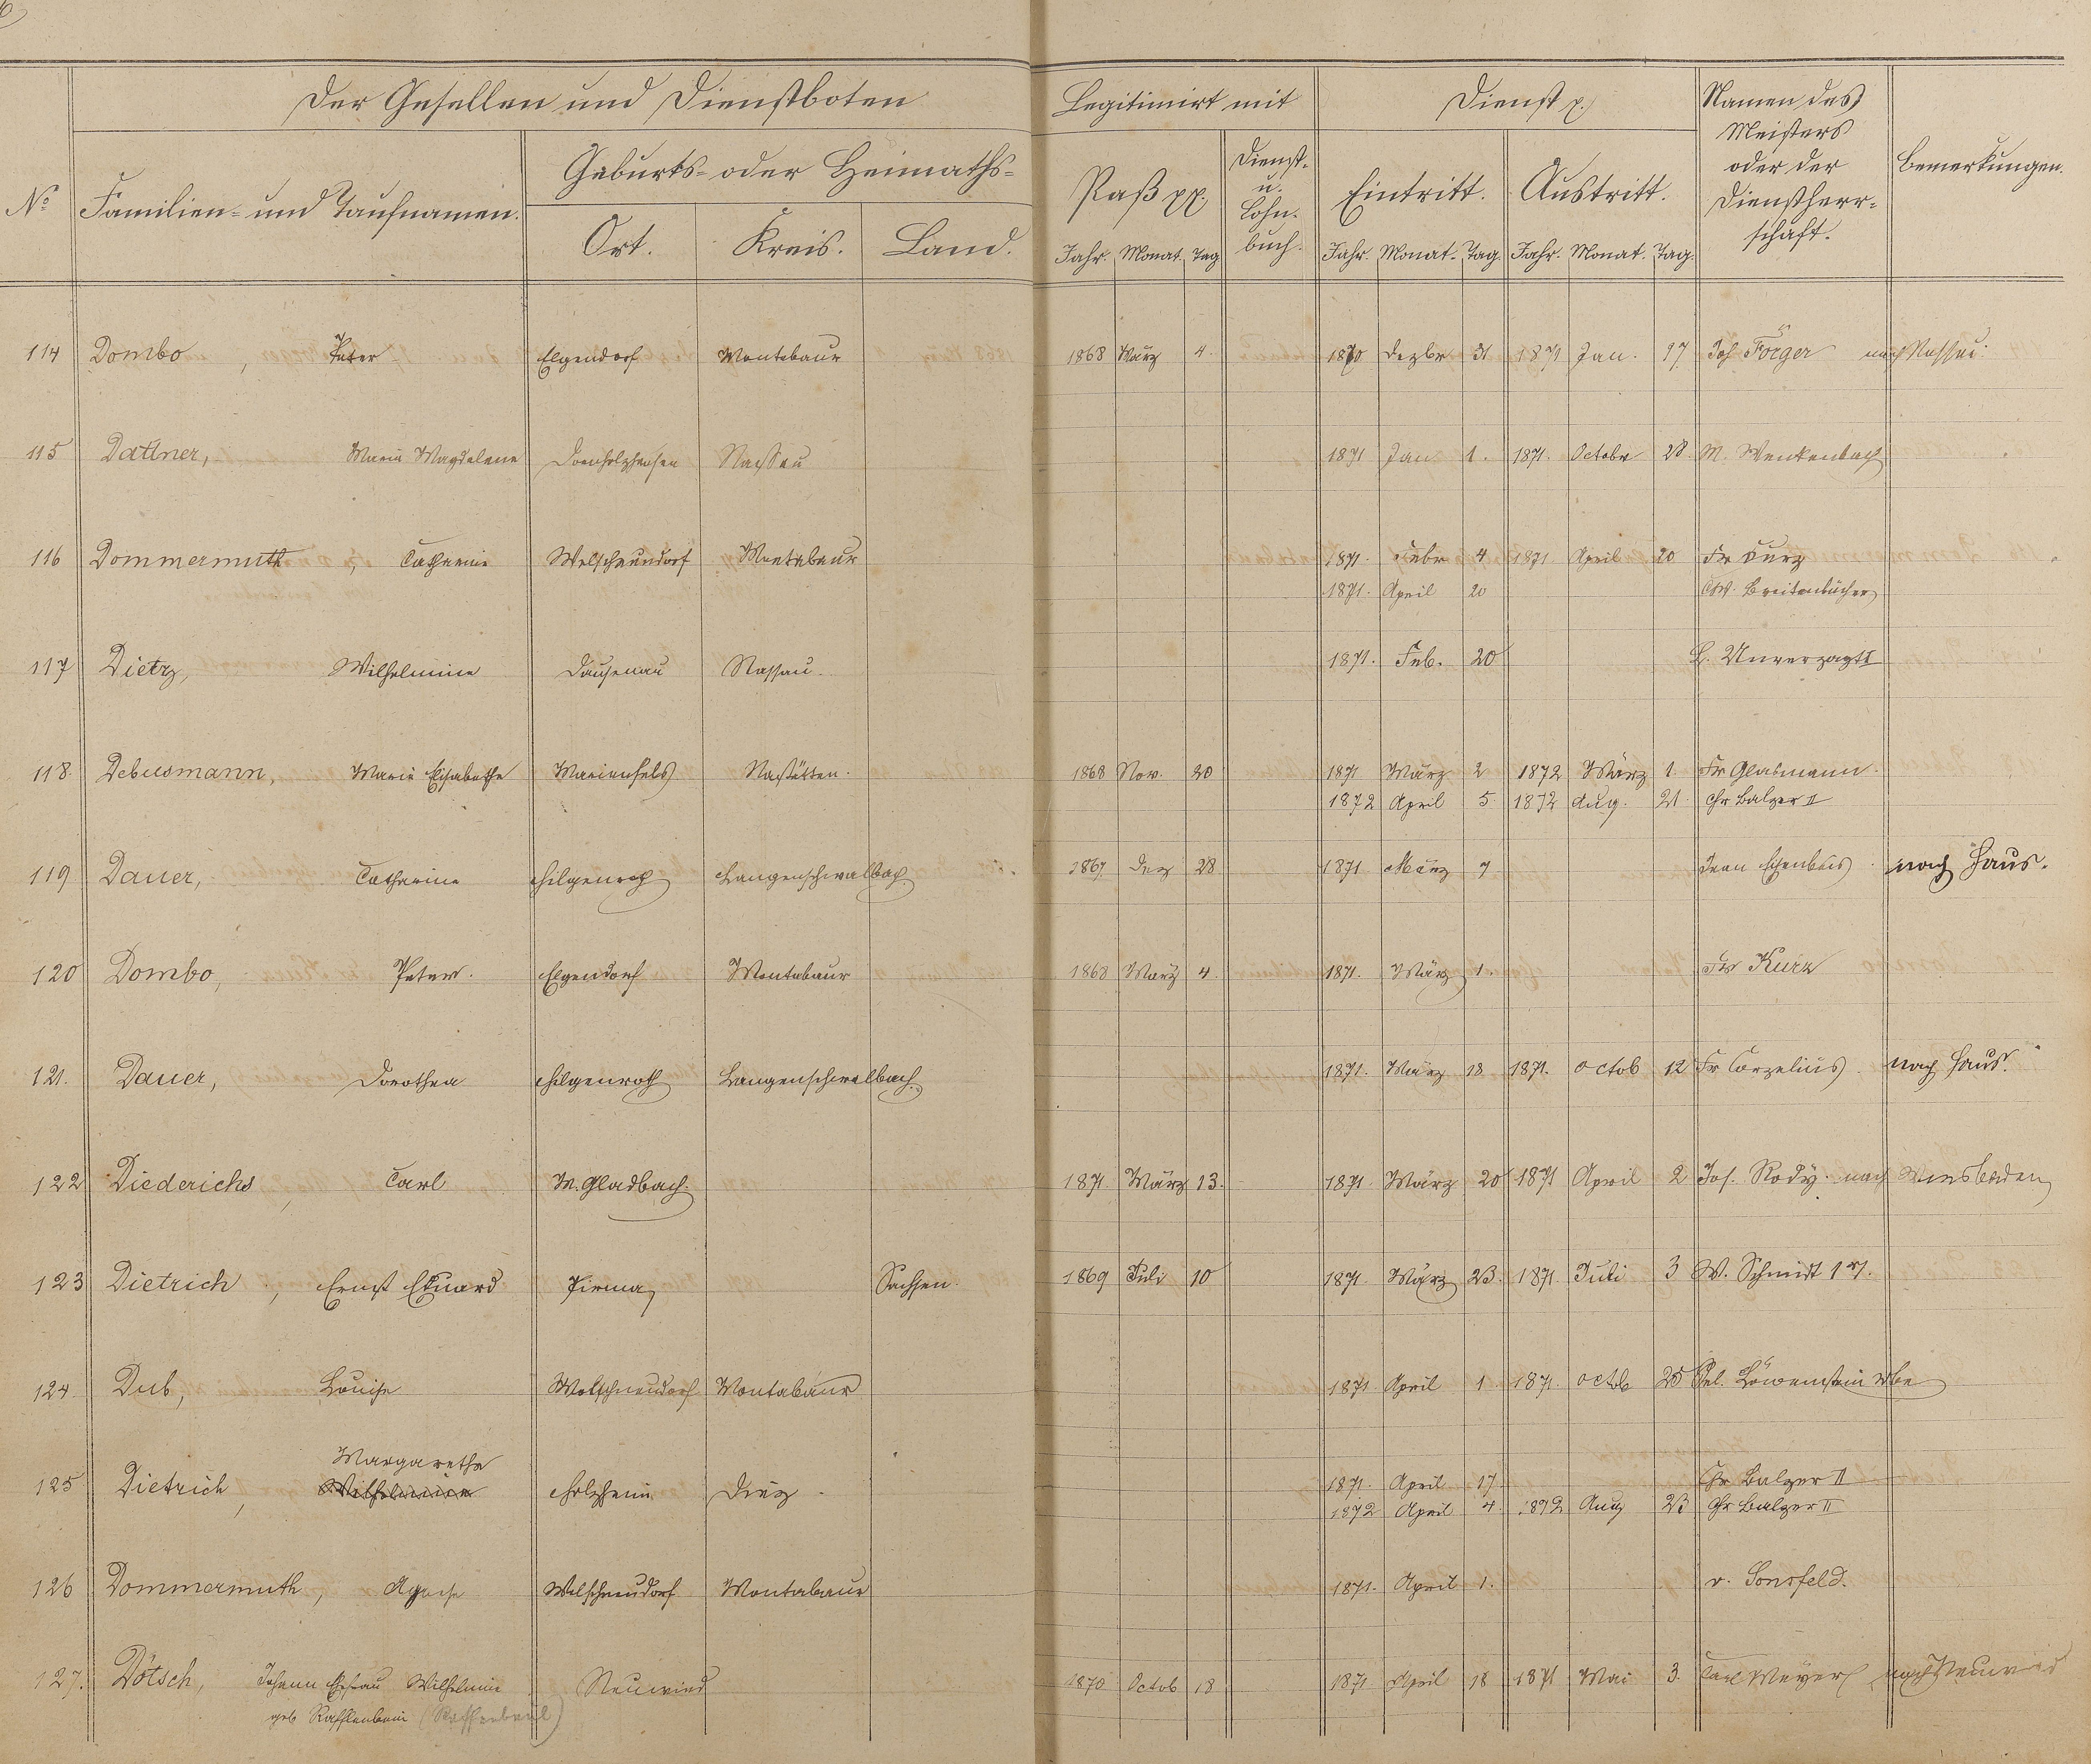 Der Gesellen und Dienstboten
Legitimirt mit
Dienst p.
Namen des
Meisters
oder der
Dienstherr-
schaft.
Bemerkungen.
No
Familien- und Taufnamen.
Geburts- oder Heimaths-
Ort. Kreis. Land.
Paß pp.
Dienst-
u.
Lohn-
buch.
Eintritt. Austritt.
Jahr. Monat. Tag Jahr. Monat. Tag. Jahr. Monat. Tag.
114 Dombo, Peter Elgendorf Montabaur 1868 März 4. 1870 Dezbr 31 1871 Jan. 17. Joh Förger nach Nassau.
115 Dattner, Maria Magdalena Dornholzhausen Nassau 1871 Jan 1. 1871. Octobr 28. M. Wenkenbach
116 Dommermuth, Catharine Welschneudorf Montabaur 1871. Febr 4 1871 April 20 Fr Kurz
1871. April 20 Chr. Breitenbücher
117 Dietz, Wilhelmine Dausenau Nassau. 1871. Feb. 20 L. Unverzagt I
118. Debusmann, Marie Elisabethe Marienfels Nastätten. 1868 Nov. 20 1871 März 2 1872 März 1. Fr Glasmann.
1872 April 5. 1872 Aug. 21. Chr Balzer II
119 Dauer, Catharine Hilgenroth Langenschwalbach. 1867. Dez 28 1871 März 7 nach Haus.
120 Dombo, Peter. Elgendorf Montabaur 1868 März 4. 1871. März 1. Fr Kurz
121. Dauer, Dorothea Hilgenroth Langenschwalbach. 1871. März 18 1871. Octob 12 Fr Corzelius. nach Haus.
122 Diederichs, Carl M. Gladbach. 1871. März 13. 1871 März 20 1871 April 2 Jos. Rody. nach Wiesbaden
123 Dietrich, Ernst Eduard Pirna, Sachsen. 1869 Juli 10 1871. März 23. 1871. Juli 3 W. Schmidt 1r.
124. Dub, Louise Welschneudorf Montabaur 1871 April 1. 1871. Octob 25 Löwenstein Wbe
Margarethe
125 Dietrich, Wilhelmine Holzheim Diez. 1871. April 17. Chr Balzer II
1872 April 4. 1872 Aug 23 Chr Balzer II
126 Dommermuth, Agnese Welschneudorf Montabaur 1871. April 1. v. Sonsfeld.
127. Dötsch, Johann Ehefrau Wilhelmine Neuwied 1870 Octob 18 1871. April 18 1871 Mai 3. Carl Meyer nach Neuwied
geb Rafflenbein